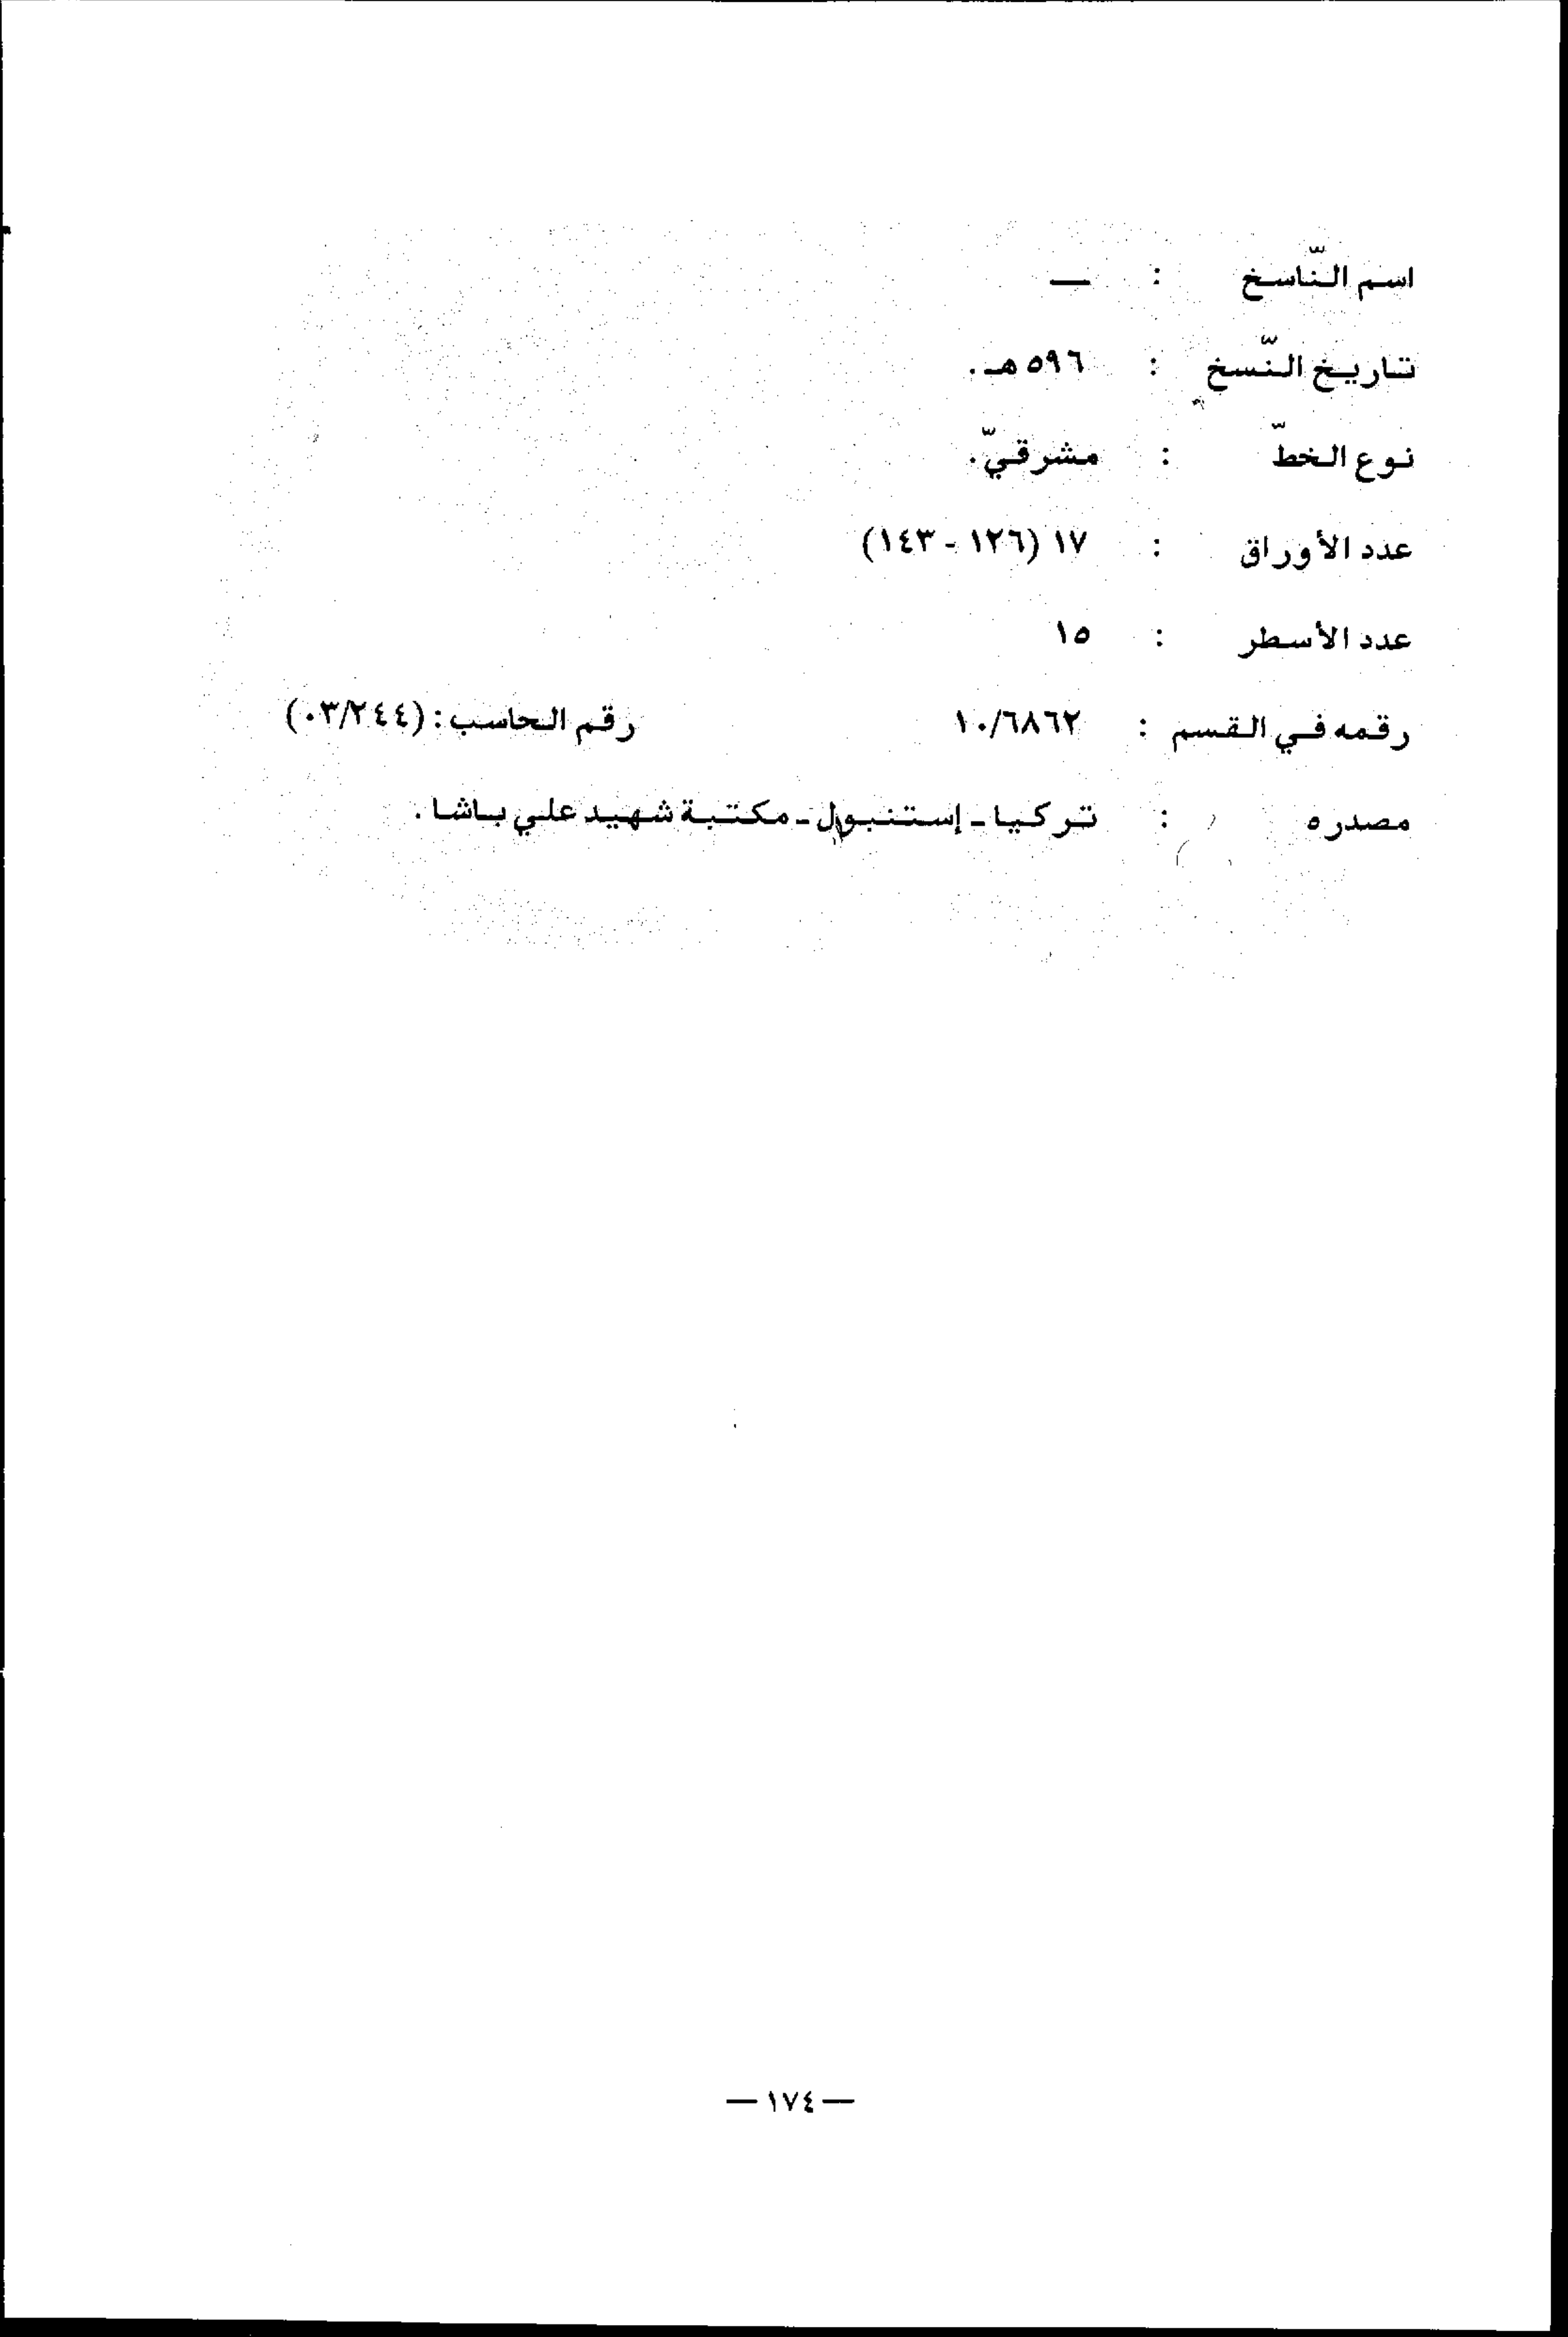 اسم النّاسخ : —
تاريخ النّسخ : ٥٩٦ هـ .
نوع الخطّ : مشرقيّ .
عدد الأوراق : ١٧ (١٢٦ - ١٤٣)
عدد الأسطر : ١٥
رقمه في القسم : ١٠/٦٨٦٢ رقم الحاسب : (٠٣/٢٤٤)
مصدره : تركيا ـ إستنبول ـ مكتبة شهيد علي باشا .
— ١٧٤ —